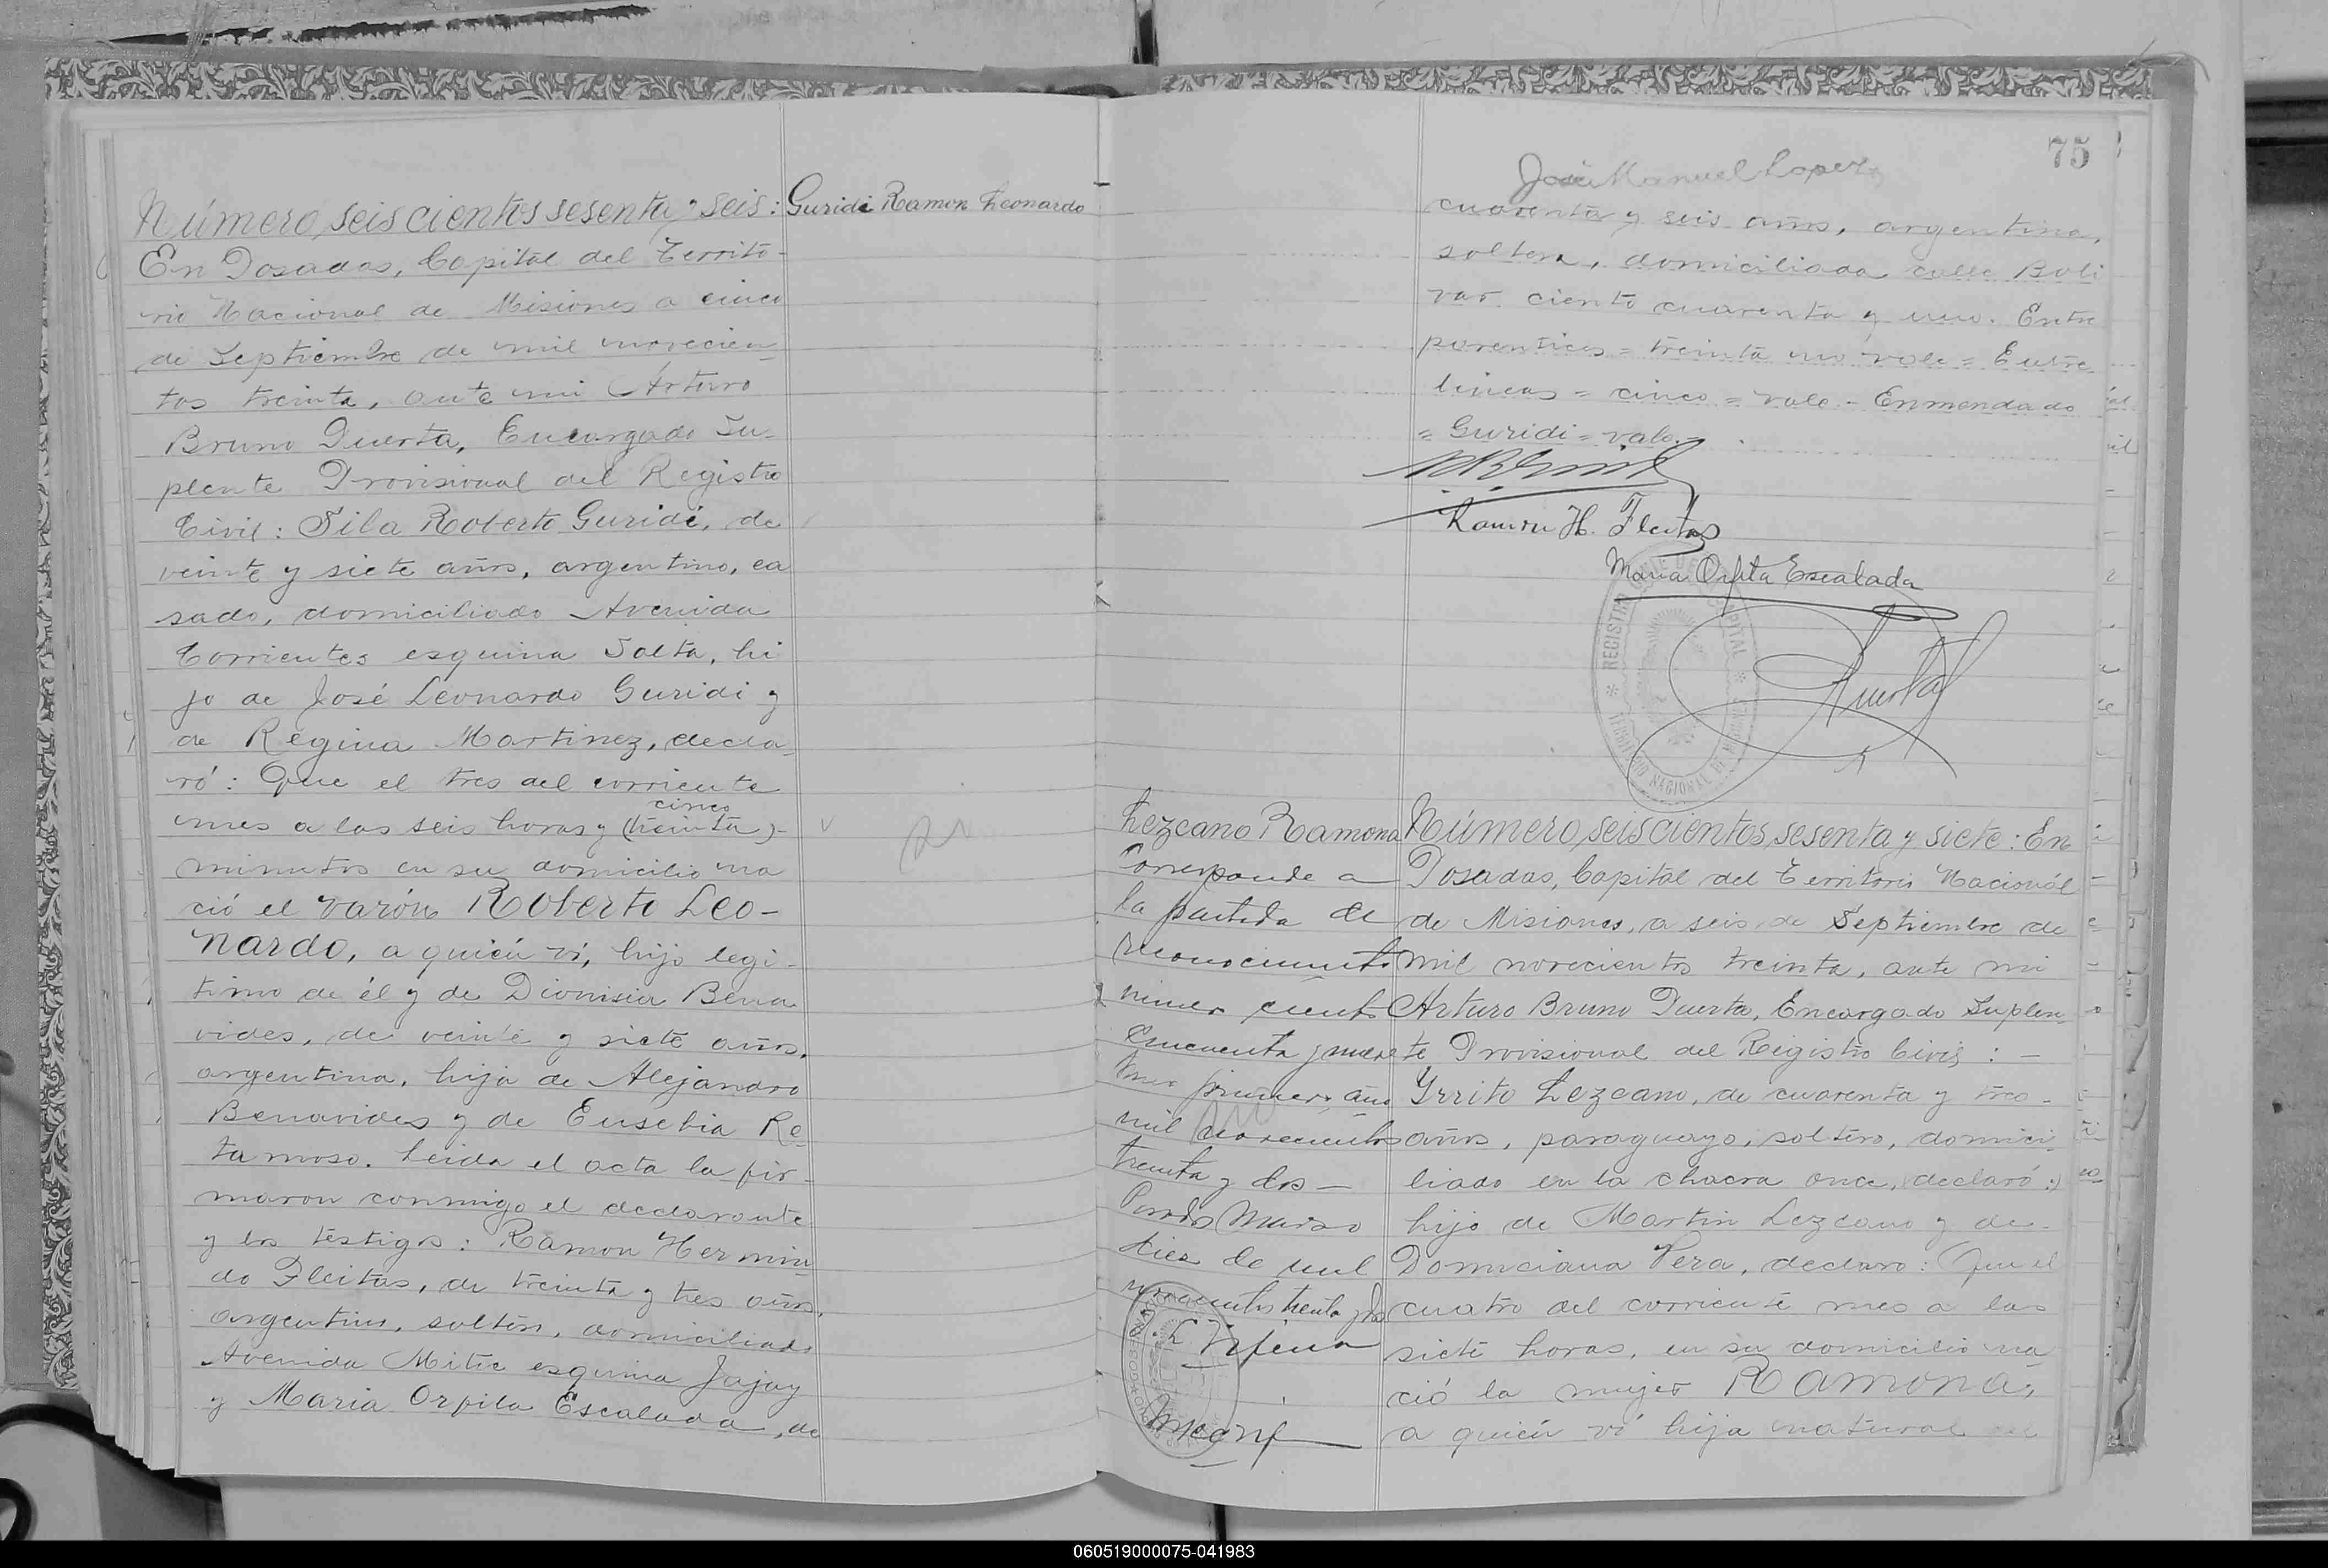 Número seis cientos sesenta y seis:
Guridi Ramon Leonardo
En Posadas, Capital del Territo-
rio Nacional de Misiones a cinco
de Septiembre de mil novecien-
tos treinta, ante mi Arturo
Bruno Puerta, Encargado Su-
plente Provisional del Registro
Civil: Sila Roberto Guridi, de
veinte y siete años, argentino, ca
sado, domiciliado Avenida
Corrientes esquina Salta, hi
jo de José Leonardo Guridi y
de Regina Martinez, decla-
ró: Que el tres del corriente
cinco
mes a las seis horas y (treinta)-
minutos en su domicilio na
ció el varón Roberto Leo-
nardo, a quién ví, hijo legi-
timo de él y de Dionisia Bena
vides, de veinte y siete años,
argentina, hija de Alejandro
Benavides y de Eusebia Re-
tamoso. Leida el acta la fir-
maron conmigo el declarante
y los testigos: Ramon Hermin-
do Fleitas, de treinta y tres años,
argentino, soltero, domiciliado
Avenida Mitre esquina Jujuy
y Maria Orfila Escalada, de
75
José Manuel Lopez
cuarenta y seis años, argentina,
soltera, domiciliada calle Boli
var ciento cuarenta y uno. Entre
parentices = treinta no vale = Entre
lineas = cinco = vale - Enmendado
= Guridi = vale.
Ramon H. Fleitas
Maria Orfila Escalada
Puerta
REGISTRO CAPITAL
NACIONAL DE MISIONES
Lezcano Ramona
Corresponde a
la partida de
reconocimiento
número ciento
cincuenta y nueve
primero, año
mil novecientos
treinta y dos —
Posadas Marzo
diez de mil
novecientos treinta y dos
Número seis cientos sesenta y siete: En
Posadas, Capital del Territorio Nacional
de Misiones, a seis de Septiembre de
mil novecientos treinta, ante mi
Arturo Bruno Puerta, Encargado Suplen-
te Provisional del Registro Civil: —
Yrrito Lezcano, de cuarenta y tres-
años, paraguayo, soltero, domici
liado en la chacra once, declaró:)
hijo de Martin Lezcano y de-
Domiciana Vera, declaro: Que el
cuatro del corriente mes a las
siete horas, en su domicilio na
ció la mujer Ramona,
a quién ví hija natural del
060519000075-041983